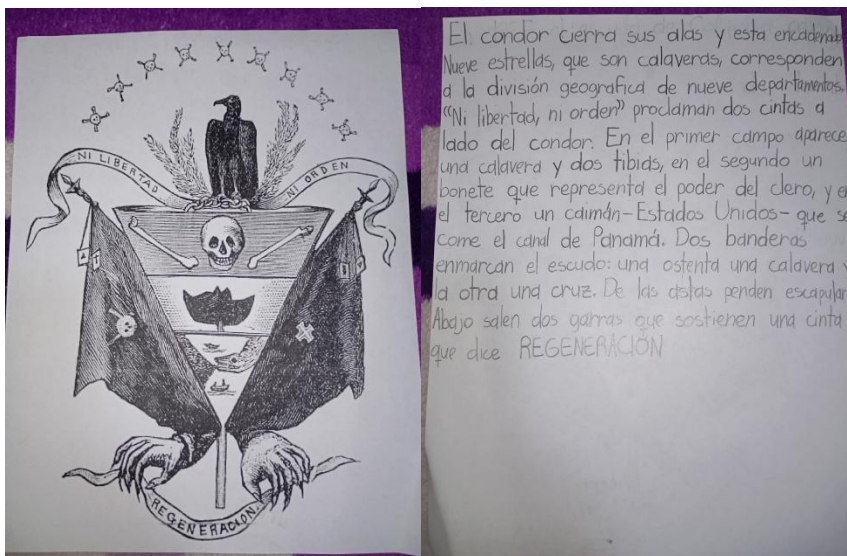 NI LIBERTAD
NI ORDEN
REGENERACION.
El condor cierra sus alas y esta encadenado
Nueve estrellas, que son calaveras, corresponden
a la división geografica de nueve departamentos.
"Ni libertad, ni orden" proclaman dos cintas a
lado del condor. En el primer campo aparece
una calavera y dos tibias, en el segundo un
bonete que representa el poder del clero, y en
el tercero un caimán-Estados Unidos- que se
come el canal de Panamá. Dos banderas
enmarcan el escudo: una ostenta una calavera y
la otra una cruz. De las astas penden escapular
Abajo salen dos garras que sostienen una cinta
que dice REGENERACIÓN